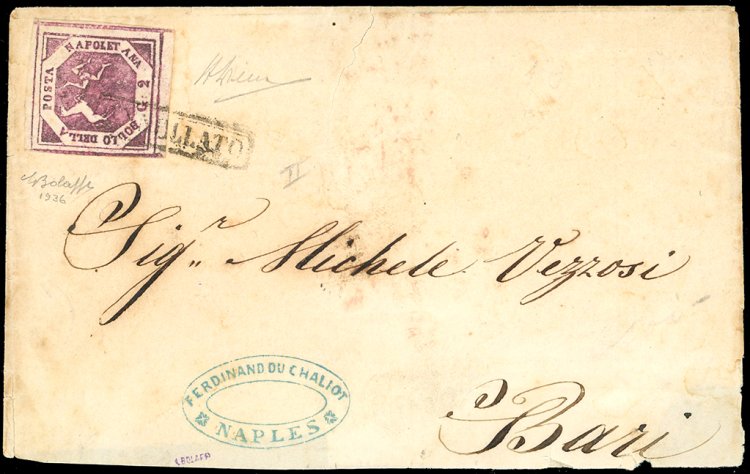 POSTA NAPOLETANA
BOLLO DELLA
G 2
ULLATO
ABolaffi
1936
II
Sig.r Michele Vezzosi
FERDINAND DU CHALIOT
NAPLES
Bari
A. BOLAFFI